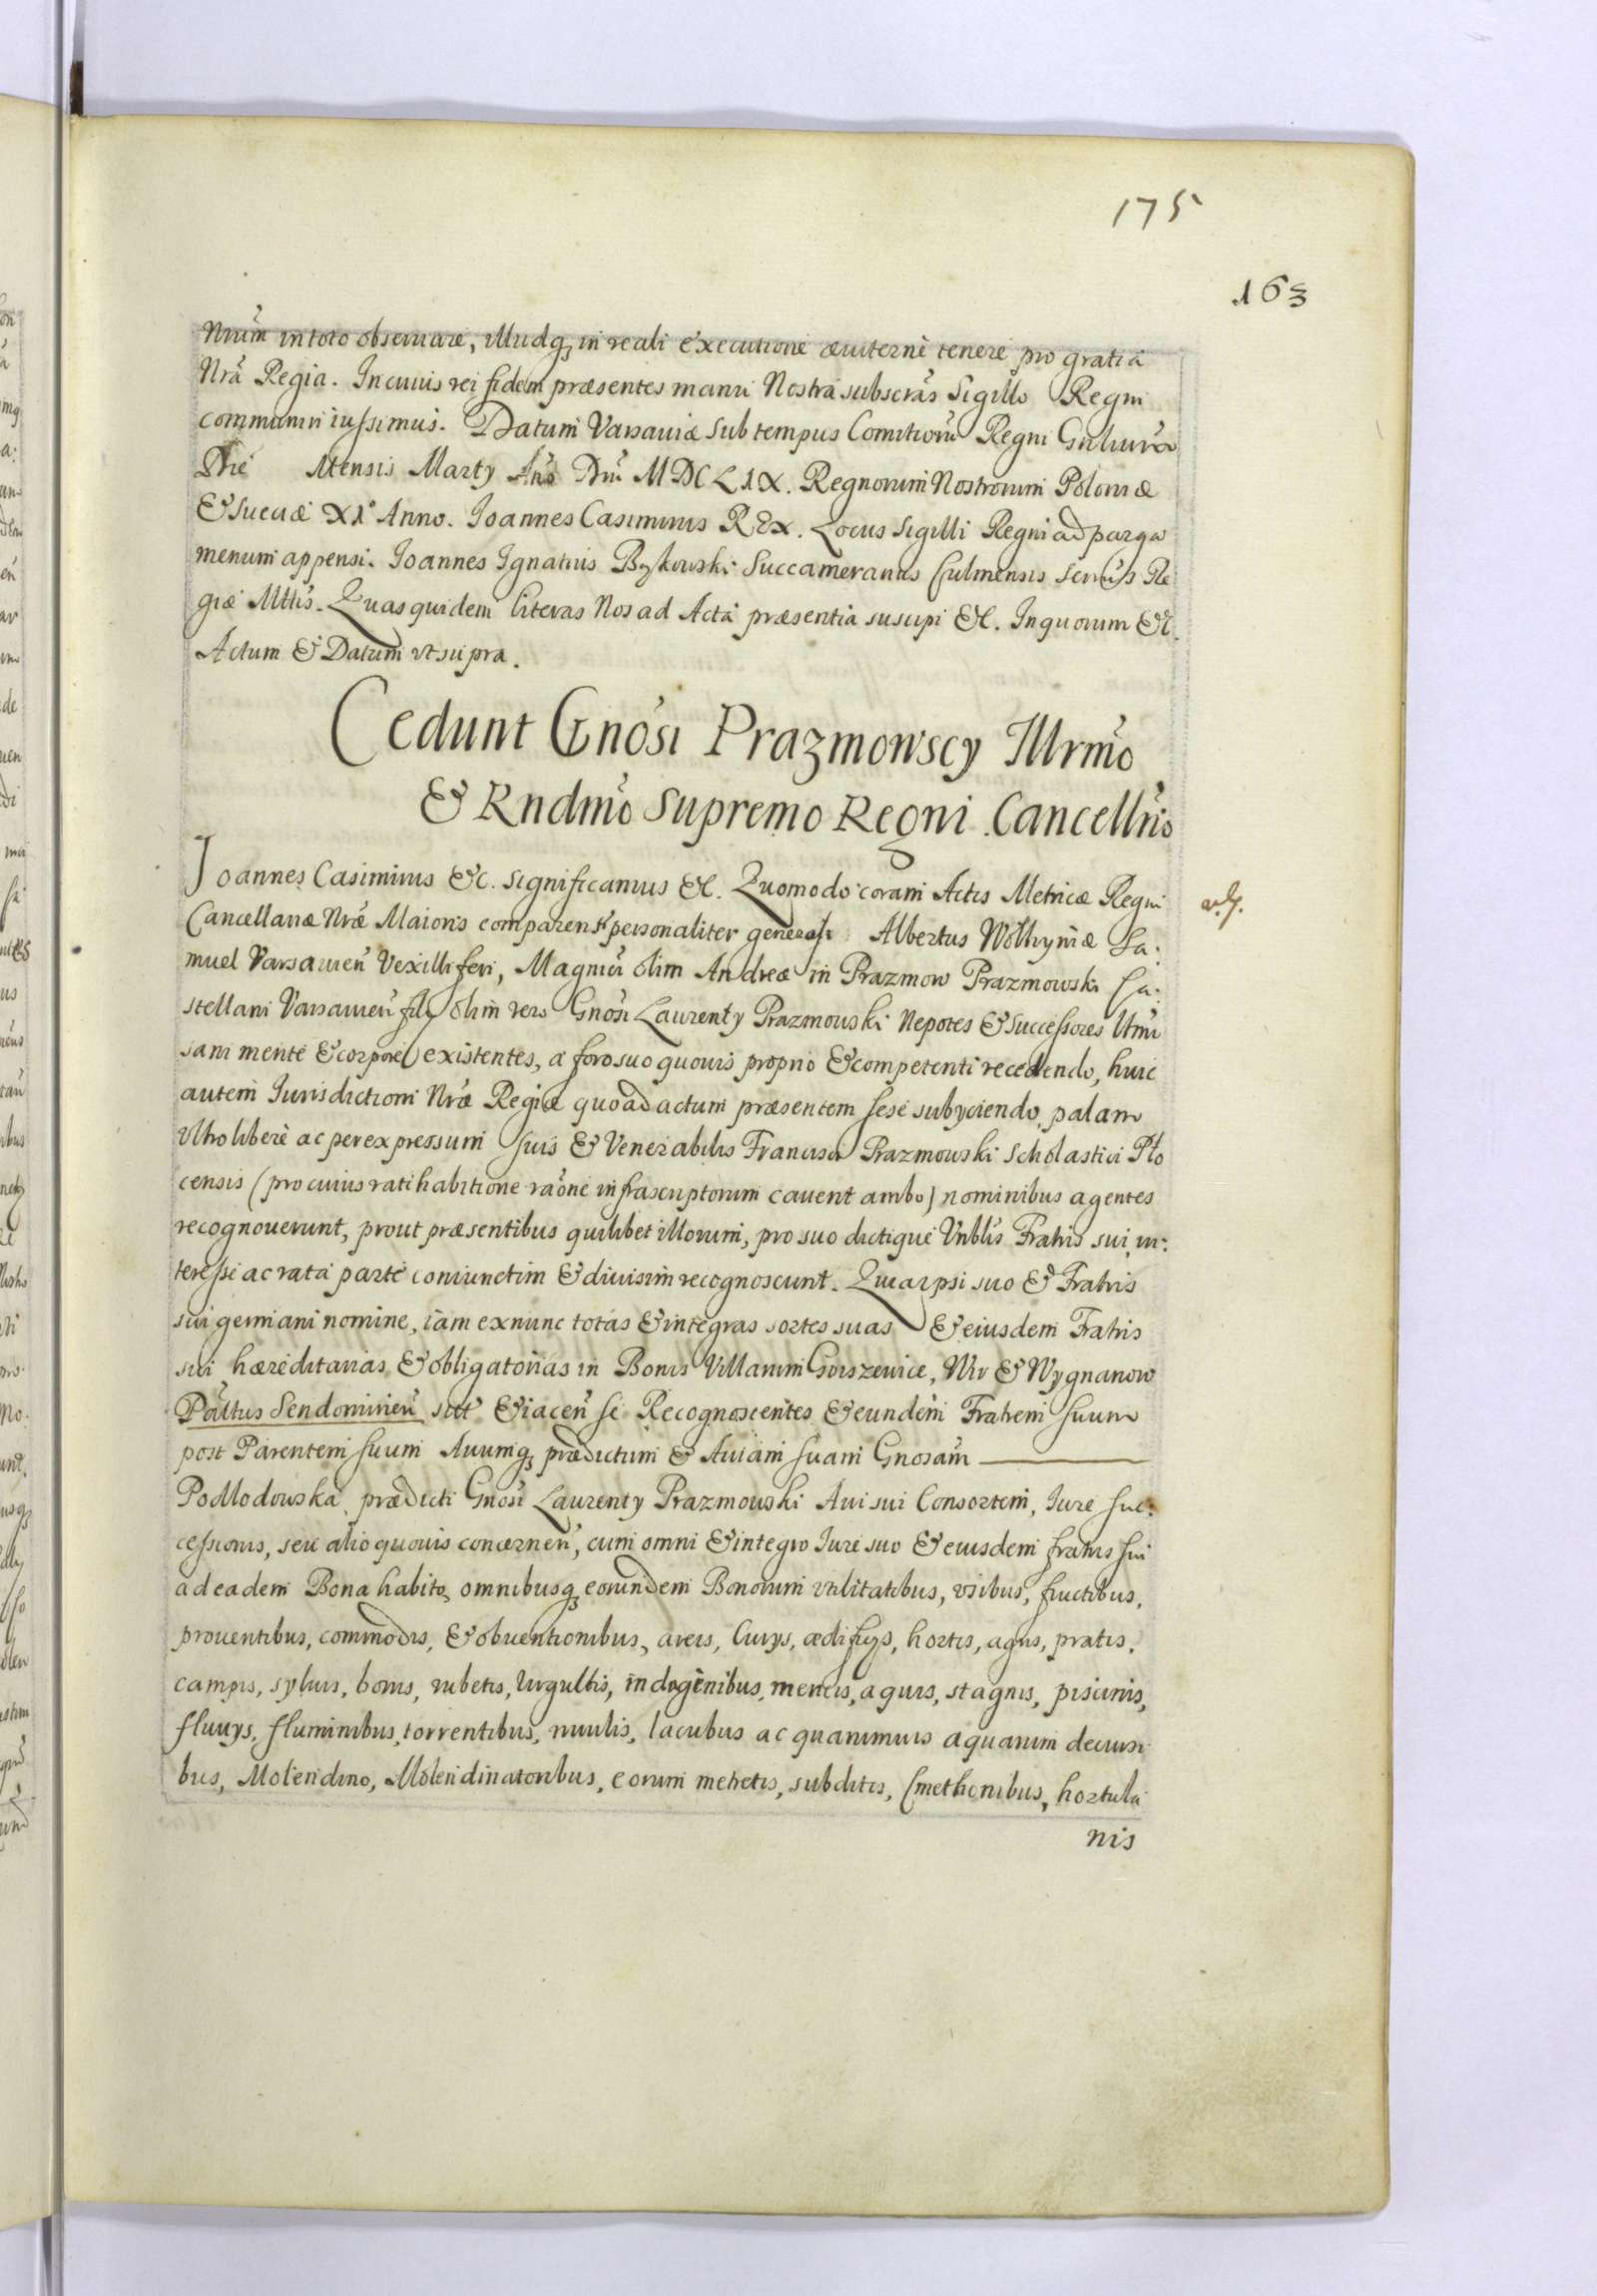 175
163
Nrũm in toto obseruare, illudq; in reali executione æuiternè tenere pro gratia
Nrã Regia. In cuius rei fidem præsentes manu Nostra subscrãs Sigillo Regni
communiri iussimus. Datum Varsauiæ sub tempus Comitiorũ Regni Gnliurõ
Die Mensis Marty Año Dnĩ MDCLIX. Regnorum Nostrorum Poloniæ
& Sueciæ XI° Anno. Ioannes Casimirus REX. Locus Sigilli Regni ad parga
menum appensi. Ioannes Ignatius Bąkowski Succamerarius Culmensis Secrius Re
giæ Mttis. Quas quidem literas Nos ad Acta præsentia suscipi &c. In quorum &c.
Actum & Datum vt supra.
Cedunt Gnosi Prazmowscy Illrmo
& Rndmo Supremo Regni Cancellrio
Ioannes Casimirus &c. Significamus &c. Quomodo coram Actis Metricæ Regni
Cancellariæ Nræ Maioris comparentes personaliter generosi Albertus Wolhyniæ Sa:
muel Varsauien Vexilliferi, Magnici olim Andreæ in Prazmow Prazmowski Ca:
stellani Varsauien fily olim vero Gnosi Laurenty Prazmowski Nepotes & Successores Vtriu
sani mente & corpore existentes, a foro suo quouis proprio & competenti recedendo, huic
autem Iurisdictioni Nræ Regiæ quoad actum præsentem sese subyciendo, palam
vltro liberè ac per expressum suis & Venerabilis Francisci Prazmowski Scholastici Plo
censis (pro cuius ratihabitione raõne infrascriptorum cauent ambo) nominibus agentes
recognouerunt, prout præsentibus quilibet illorum, pro suo dictique Vnblis Fratris sui in:
teresse ac rata parte coniunctim & diuisim recognoscunt. Quia ipsi suo & Fratris
sui germani nomine, iam exnunc totas & integras sortes suas & eiusdem Fratris
sui hæreditarias & obligatorias in Bonis Villarum Gorszewice, & Wygnanow
Pãltus Sendomirien sitt & iacen se Recognoscentes & eundem Fratrem suum
post Parentem suum Auumq; prædictum & Auiam suam Gnosam
Podlodowska prædicti Gnosi Laurenty Prazmowski Aui sui Consortem, Iure suc:
cessionis, seu alio quouis concernen, cum omni & integro Iure suo & eiusdem fratris sui
ad eadem Bona habito, omnibusq; eorundem Bonorum vtilitatibus, vsibus, fructibus,
prouentibus, commodis, & obuentionibus, areis, Curys, ædificys, hortis, agris, pratis,
campis, syluis, boris, rubetis, virgultis, indaginibus, mericis, aquis, stagnis, piscinis,
fluuys, fluminibus, torrentibus, riuulis, lacubus ac quarumuis aquarum decursi
bus, Molendino, Molendinatoribus, eorum metretis, subditis, Cmethonibus, hortula
nis